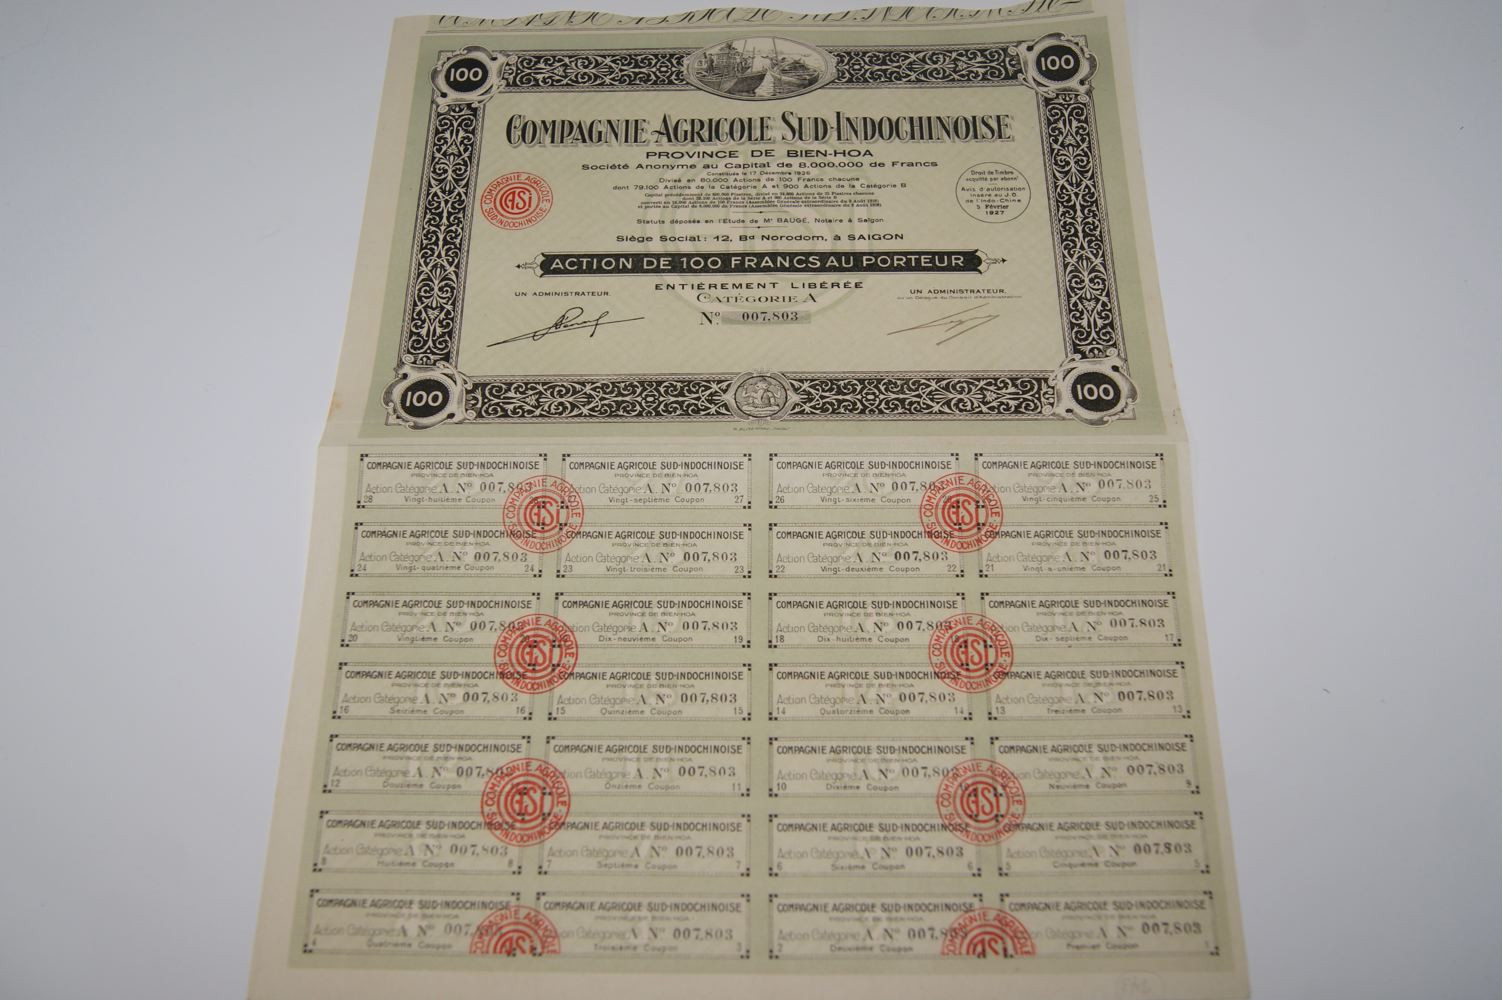 100
100
COMPAGNIE AGRICOLE SUD-INDOCHINOISE
PROVINCE DE BIEN-HOA
Société Anonyme au Capital de 8.000.000 de Francs
Constituée le 17 Décembre 1926
Divisé en 80.000 Actions de 100 Francs chacune
dont 79.100 Actions de la Catégorie A et 900 Actions de la Catégorie B
COMPAGNIE AGRICOLE
CASI
SUD-INDOCHINOISE
Droit de Timbre
acquitté par abonnt
Avis d'autorisation
inséré au J.O.
de l'Indo-Chine
5 Février
1927
Statuts déposés en l'Étude de Me BAUGÉ, Notaire à Saïgon
Siège Social: 12, Bd Norodom, à SAIGON
ACTION DE 100 FRANCS AU PORTEUR
ENTIÈREMENT LIBÉRÉE
CATÉGORIE A
No. 007,803
UN ADMINISTRATEUR.
UN ADMINISTRATEUR.
ou un Délégué du Conseil d'Administration
100
100
COMPAGNIE AGRICOLE SUD-INDOCHINOISE
PROVINCE DE BIEN-HOA
Action Catégorie A. No 007,803
28 Vingt-huitième Coupon
COMPAGNIE AGRICOLE SUD-INDOCHINOISE
PROVINCE DE BIEN-HOA
Action Catégorie A. No 007,803
Vingt-septième Coupon 27
COMPAGNIE AGRICOLE SUD-INDOCHINOISE
PROVINCE DE BIEN-HOA
Action Catégorie A. No 007,803
26 Vingt-sixième Coupon
COMPAGNIE AGRICOLE SUD-INDOCHINOISE
PROVINCE DE BIEN-HOA
Action Catégorie A. No 007,803
Vingt-cinquième Coupon 25
COMPAGNIE AGRICOLE SUD-INDOCHINOISE
PROVINCE DE BIEN-HOA
Action Catégorie A. No 007,803
24 Vingt-quatrième Coupon 24
COMPAGNIE AGRICOLE SUD-INDOCHINOISE
PROVINCE DE BIEN-HOA
Action Catégorie A. No 007,803
23 Vingt-troisième Coupon 23
COMPAGNIE AGRICOLE SUD-INDOCHINOISE
PROVINCE DE BIEN-HOA
Action Catégorie A. No 007,803
22 Vingt-deuxième Coupon 22
COMPAGNIE AGRICOLE SUD-INDOCHINOISE
PROVINCE DE BIEN-HOA
Action Catégorie A. No 007,803
21 Vingt-&-unième Coupon 21
COMPAGNIE AGRICOLE SUD-INDOCHINOISE
PROVINCE DE BIEN-HOA
Action Catégorie A. No 007,803
20 Vingtième Coupon
COMPAGNIE AGRICOLE SUD-INDOCHINOISE
PROVINCE DE BIEN-HOA
Action Catégorie A. No 007,803
Dix-neuvième Coupon 19
COMPAGNIE AGRICOLE SUD-INDOCHINOISE
PROVINCE DE BIEN-HOA
Action Catégorie A. No 007,803
18 Dix-huitième Coupon
COMPAGNIE AGRICOLE SUD-INDOCHINOISE
PROVINCE DE BIEN-HOA
Action Catégorie A. No 007,803
Dix-septième Coupon 17
COMPAGNIE AGRICOLE SUD-INDOCHINOISE
PROVINCE DE BIEN-HOA
Action Catégorie A. No 007,803
16 Seizième Coupon 16
COMPAGNIE AGRICOLE SUD-INDOCHINOISE
PROVINCE DE BIEN-HOA
Action Catégorie A. No 007,803
15 Quinzième Coupon 15
COMPAGNIE AGRICOLE SUD-INDOCHINOISE
PROVINCE DE BIEN-HOA
Action Catégorie A. No 007,803
14 Quatorzième Coupon 14
COMPAGNIE AGRICOLE SUD-INDOCHINOISE
PROVINCE DE BIEN-HOA
Action Catégorie A. No 007,803
13 Treizième Coupon 13
COMPAGNIE AGRICOLE SUD-INDOCHINOISE
PROVINCE DE BIEN-HOA
Action Catégorie A. No 007,803
12 Douzième Coupon
COMPAGNIE AGRICOLE SUD-INDOCHINOISE
PROVINCE DE BIEN-HOA
Action Catégorie A. No 007,803
Onzième Coupon 11
COMPAGNIE AGRICOLE SUD-INDOCHINOISE
PROVINCE DE BIEN-HOA
Action Catégorie A. No 007,803
10 Dixième Coupon
COMPAGNIE AGRICOLE SUD-INDOCHINOISE
PROVINCE DE BIEN-HOA
Action Catégorie A. No 007,803
Neuvième Coupon 9
COMPAGNIE AGRICOLE SUD-INDOCHINOISE
PROVINCE DE BIEN-HOA
Action Catégorie A No 007,803
8 Huitième Coupon 8
COMPAGNIE AGRICOLE SUD-INDOCHINOISE
PROVINCE DE BIEN-HOA
Action Catégorie A No 007,803
7 Septième Coupon 7
COMPAGNIE AGRICOLE SUD-INDOCHINOISE
PROVINCE DE BIEN-HOA
Action Catégorie A No 007,803
6 Sixième Coupon 6
COMPAGNIE AGRICOLE SUD-INDOCHINOISE
PROVINCE DE BIEN-HOA
Action Catégorie A No 007,803
5 Cinquième Coupon 5
COMPAGNIE AGRICOLE SUD-INDOCHINOISE
PROVINCE DE BIEN-HOA
Action Catégorie A No 007,803
4 Quatrième Coupon
COMPAGNIE AGRICOLE SUD-INDOCHINOISE
PROVINCE DE BIEN-HOA
Action Catégorie A No 007,803
Troisième Coupon 3
COMPAGNIE AGRICOLE SUD-INDOCHINOISE
PROVINCE DE BIEN-HOA
Action Catégorie A No 007,803
2 Deuxième Coupon
COMPAGNIE AGRICOLE SUD-INDOCHINOISE
PROVINCE DE BIEN-HOA
Action Catégorie A No 007,803
Premier Coupon 1